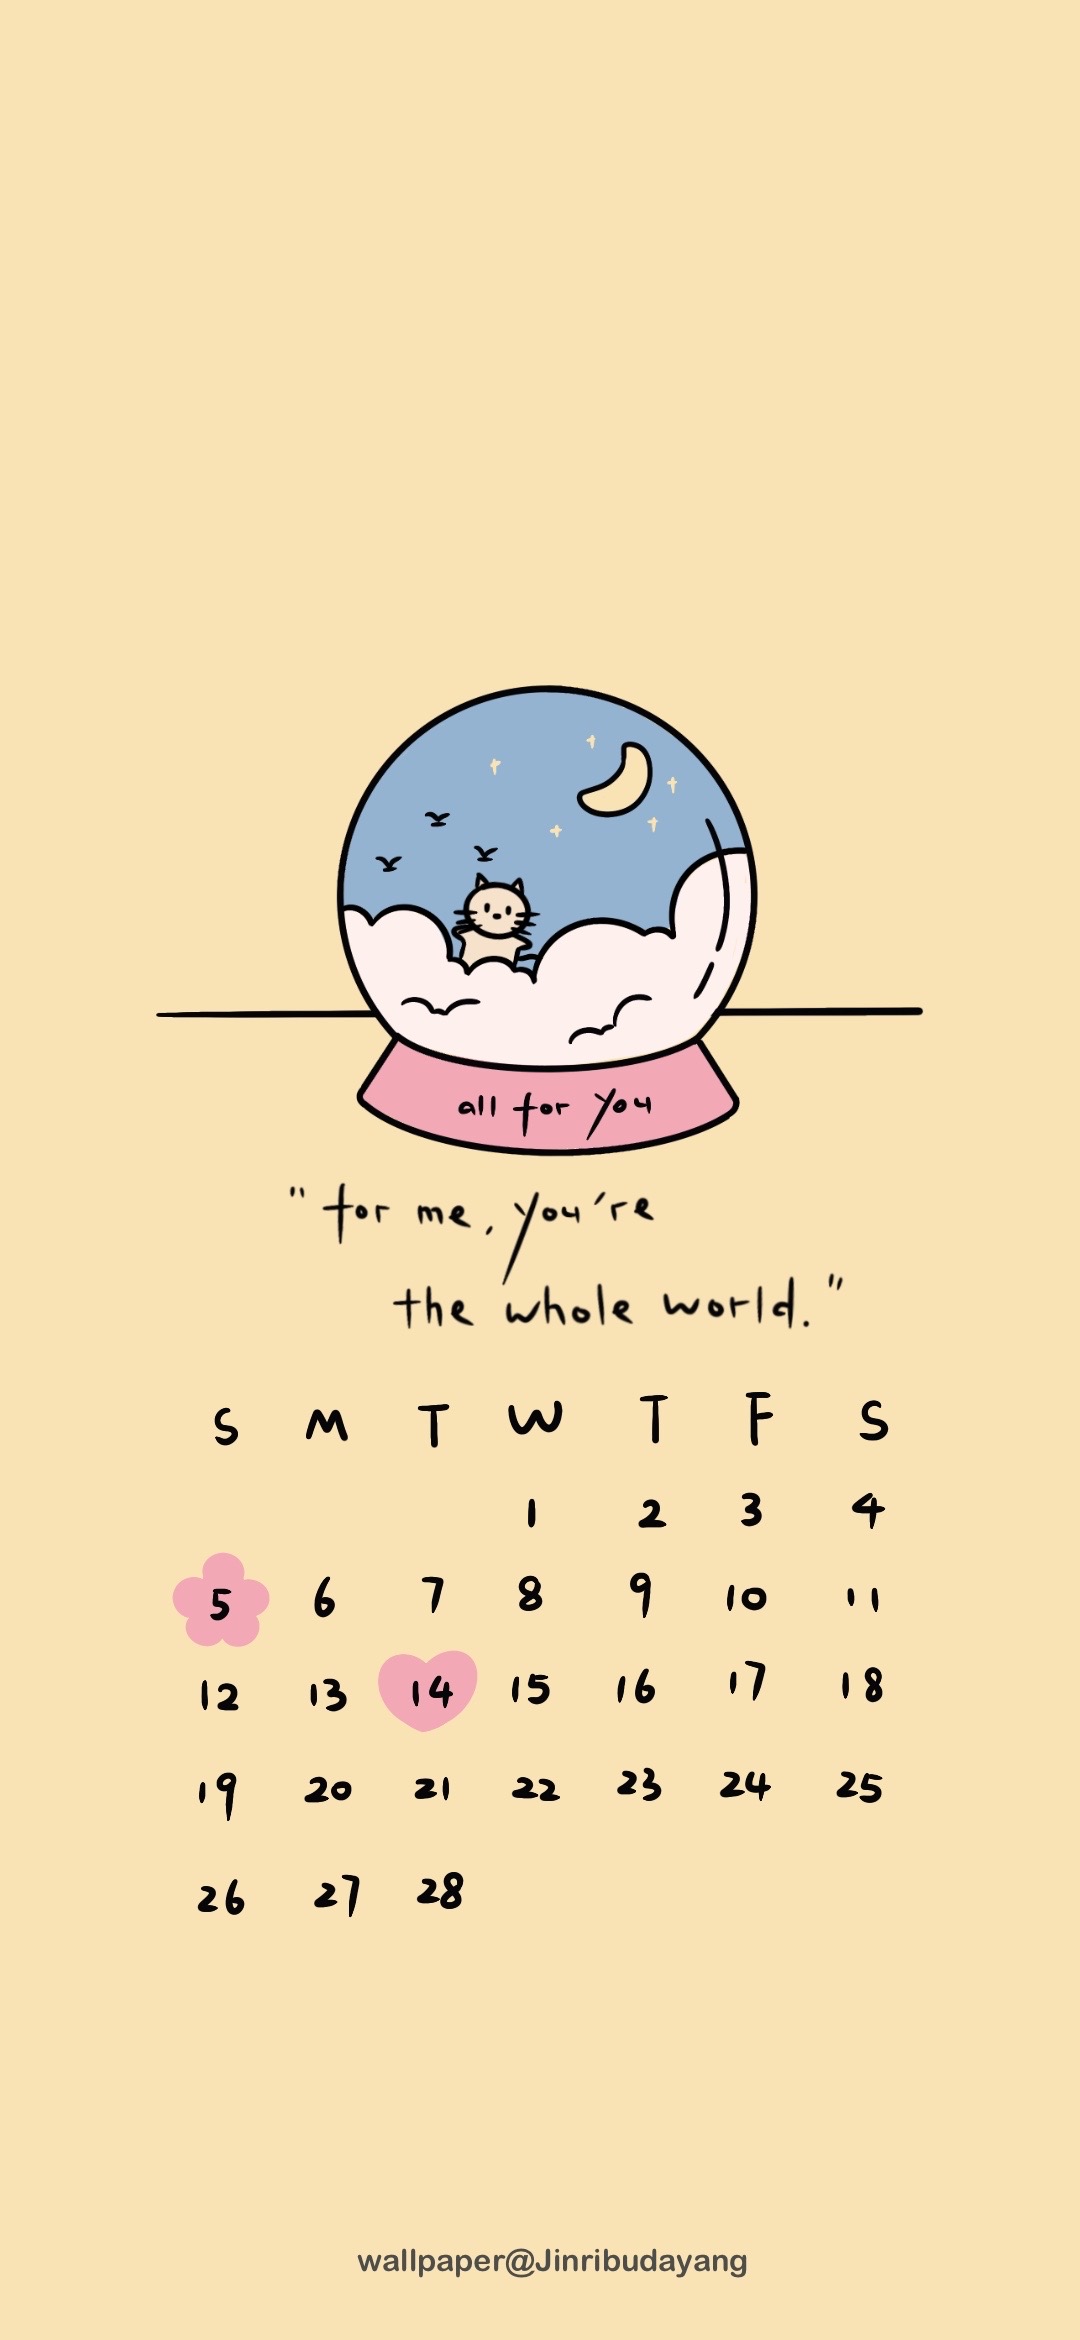 all for you
"for me, you're
the whole world."
S M T W T F S
1 2 3 4
5 6 7 8 9 10 11
12 13 14 15 16 17 18
19 20 21 22 23 24 25
26 27 28
wallpaper@Jinribudayang